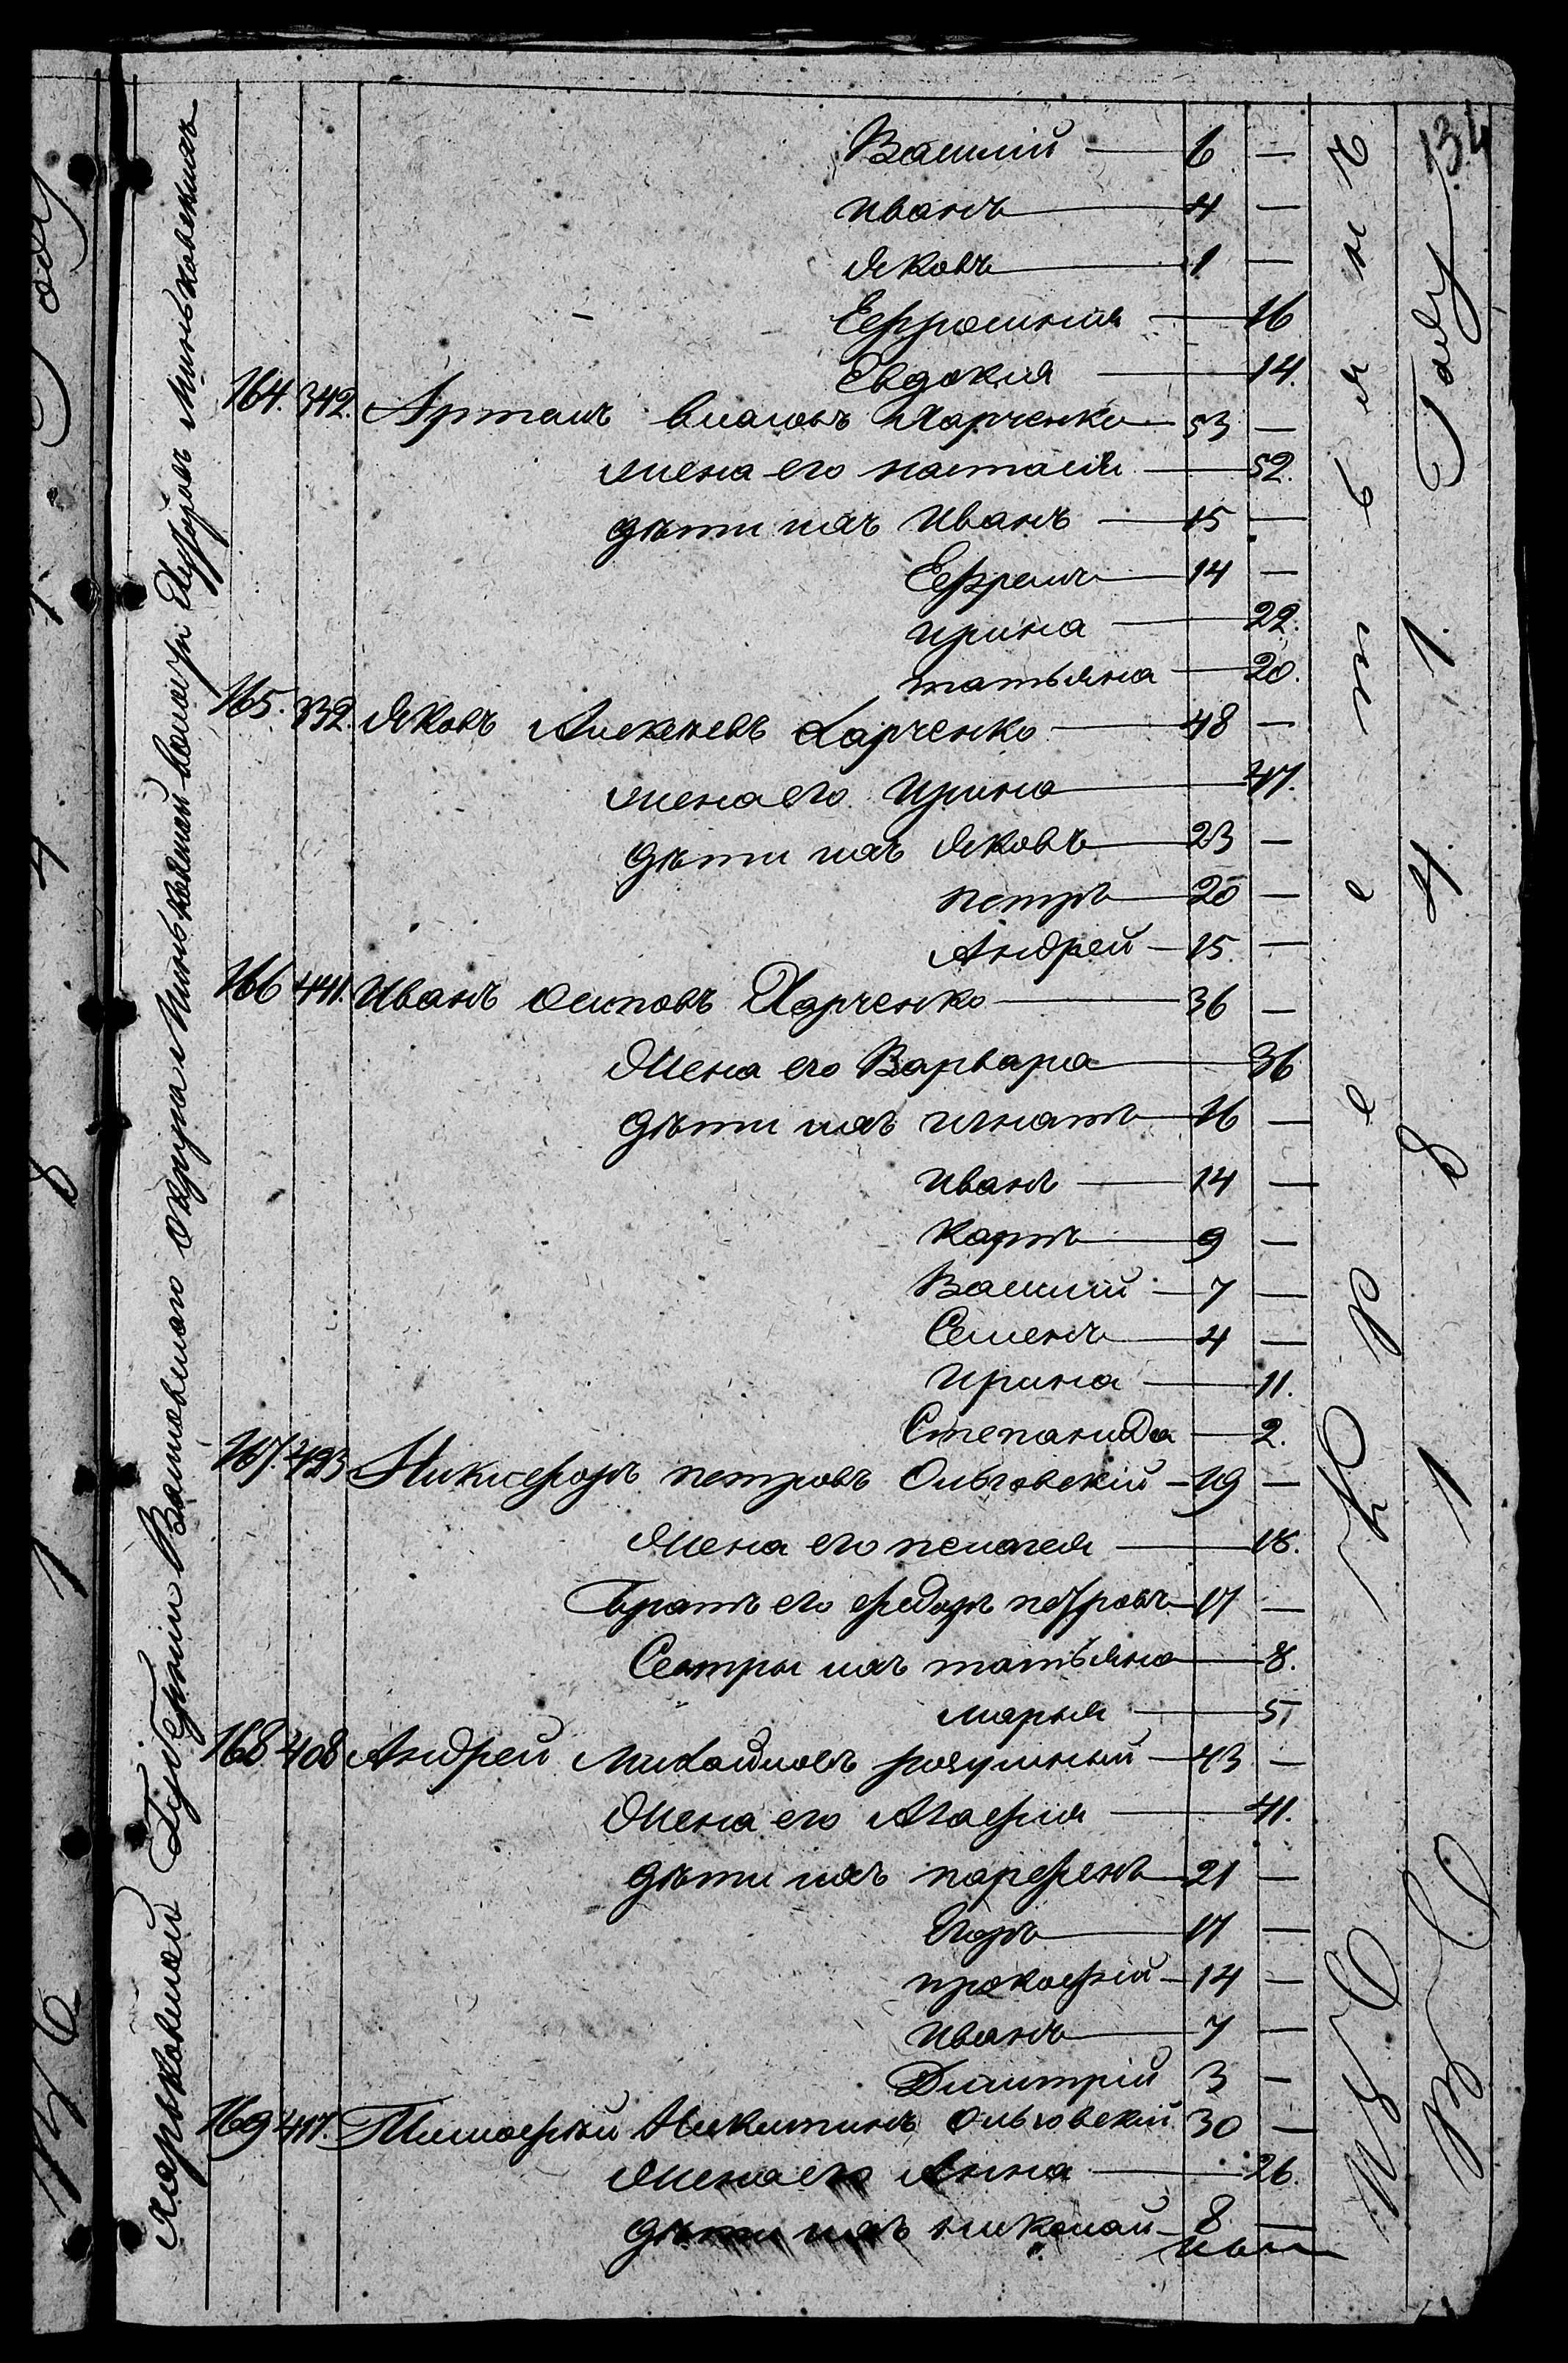 134
Василій — 6 —
Иванъ — 4 —
Яковъ — 1 —
Ефросинія — 16
Евдокія — 14.
164. 342. Артемъ Власовъ Харченко — 53 —
жена его настасія — 52.
дѣти ихъ Иванъ — 15 —
Ефремъ — 14 —
ирина — 22.
татьяна — 20.
165. 332. Яковъ Алексеевъ Харченко — 48 —
жена его Ирина — 47.
дѣти ихъ Яковъ — 23 —
петръ — 20 —
Андрей — 15 —
166 441. Иванъ Осиповъ Харченко — 36 —
Жена его Варвара — 36
дѣти ихъ игнатъ — 16 —
Иванъ — 14 —
карпъ — 9 —
Василий — 7 —
Семенъ — 4 —
ирина — 11.
Степанида — 2.
167. 423 Никифоръ петровъ Ольговскій — 19 —
Жена его пелагея — 18.
братъ его федоръ петровъ — 17 —
Сестры ихъ татьяна — 8.
марья — 5
168 408 Андрей Михайловъ розумный — 43 —
Жена его Агафия — 41.
дѣти ихъ парфенъ — 21 —
Егоръ — 17 —
прокофій — 14 —
Иванъ — 7 —
Димитрій 3 —
169 417. Тимофей Никитинъ Ольговский 30 —
Жена его Анна — 26
дѣти ихъ николай — 8 —
Харьковской Губернии Волчанского округа
крестьянъ
В 1 8 4 1. Году